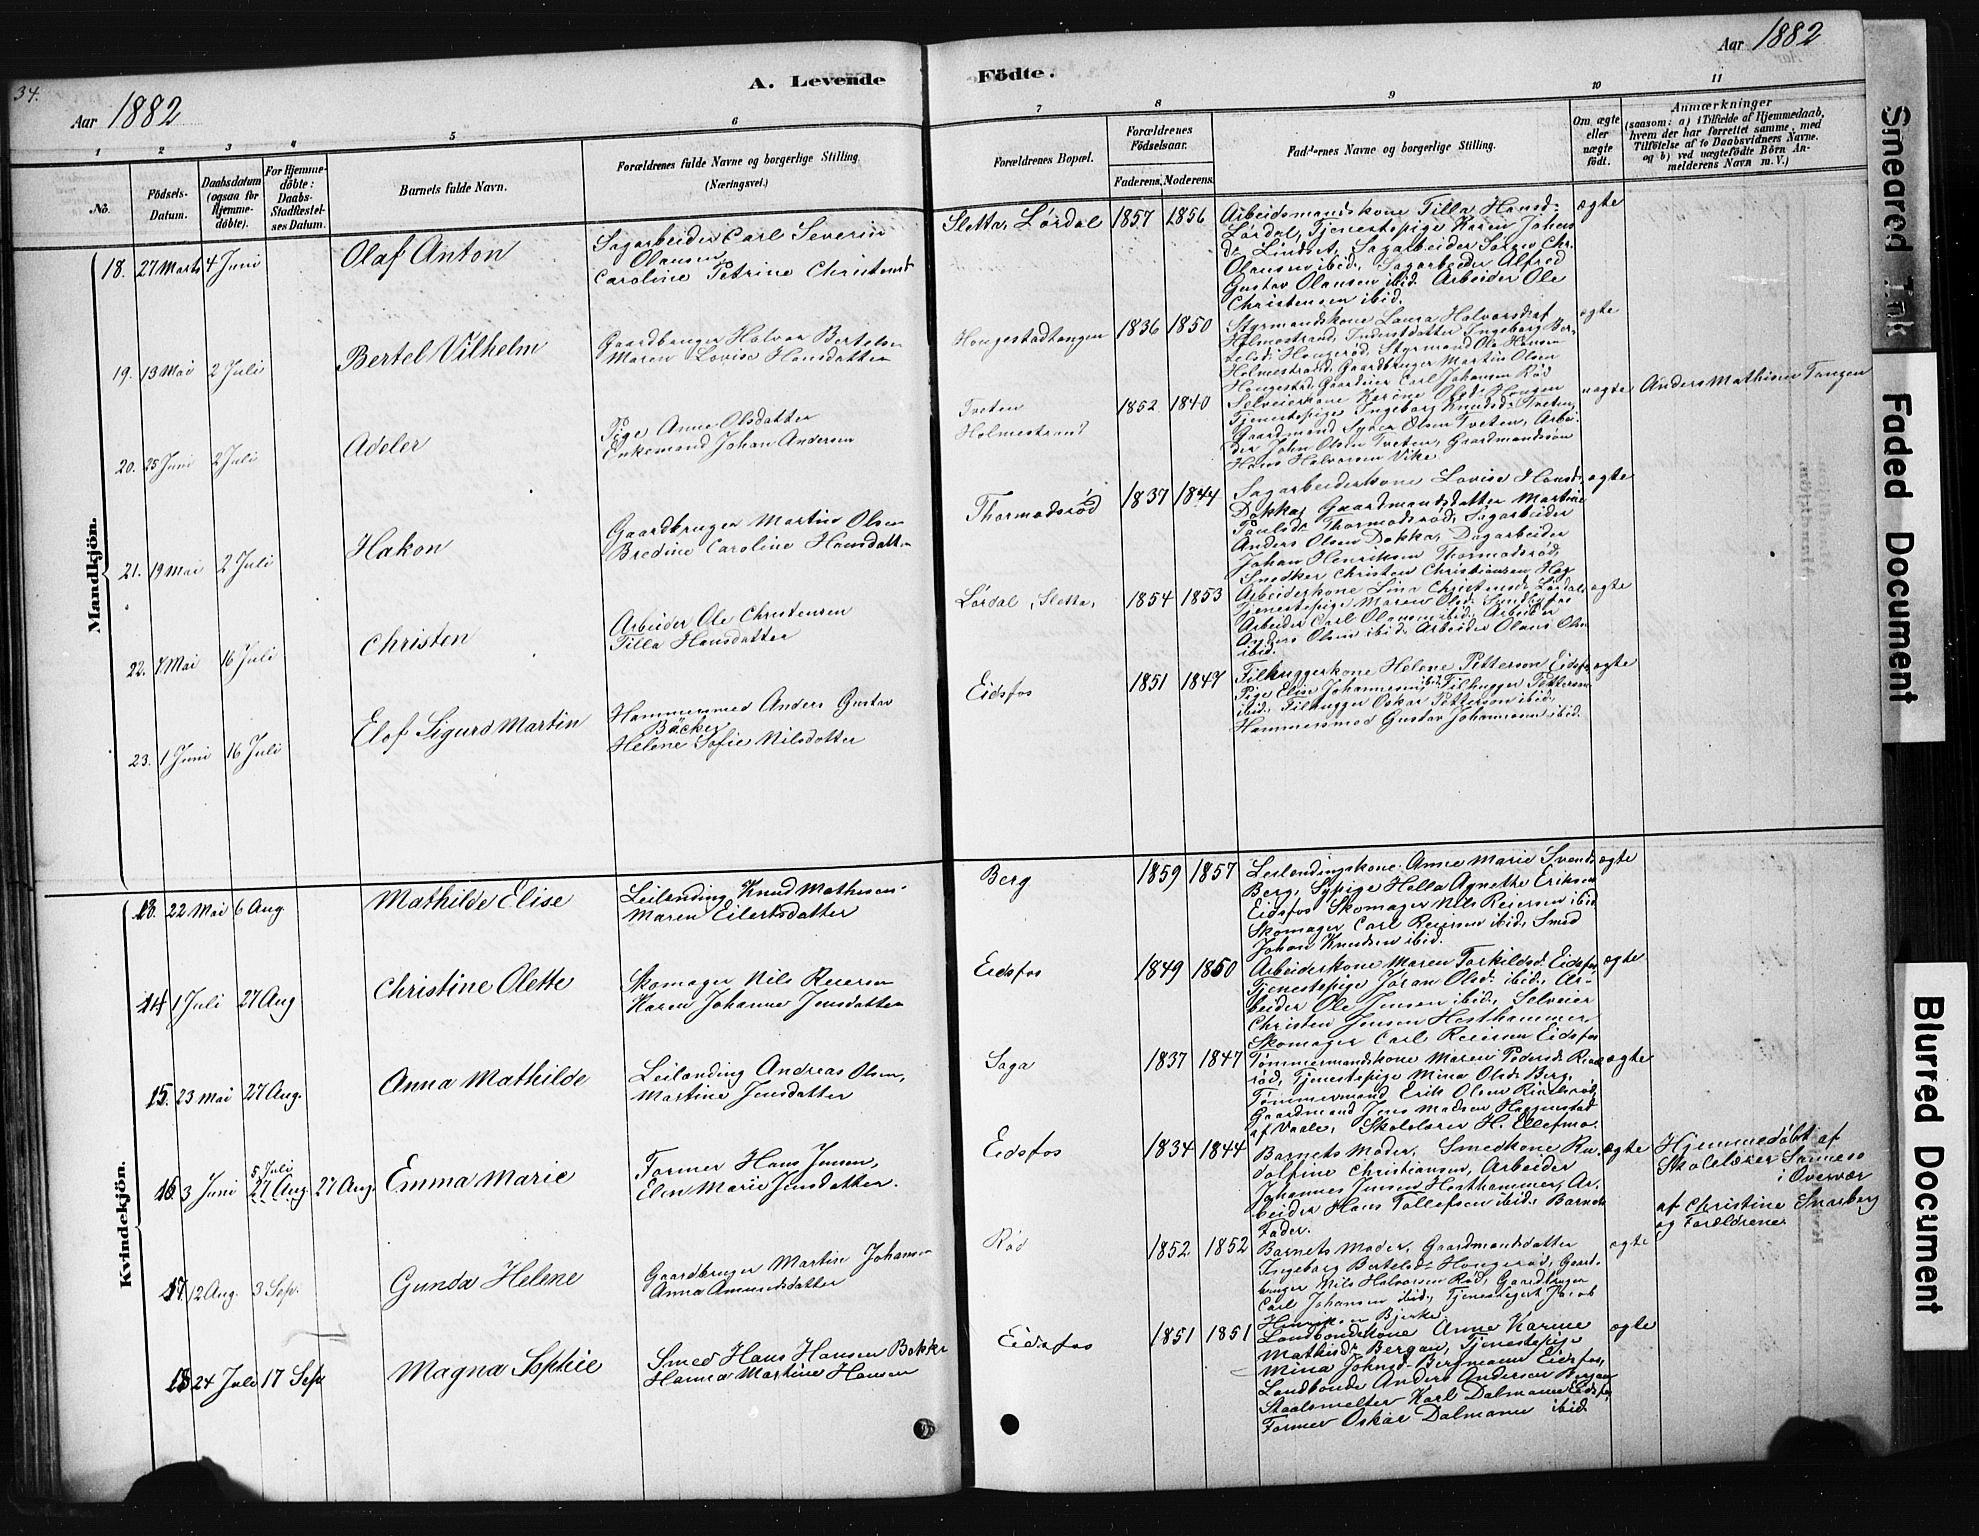 34.
Aar 1882
A. Levende
Födte.
Aar 1882
1 2 3 4 5 6 7 8 9 10 11
No.
Födsels-
Datum.
Daabsdatum
(ogsaa for
Hjemme-
döbte).
For Hjemme-
döbte:
Daabs-
Stadfæstel-
ses Datum.
Barnets fulde Navn.
Forældrenes fulde Navne og borgerlige Stilling
(Næringsvei.)
Forældrenes Bopæl.
Forældrenes
Födselsaar.
Faderens. Moderens.
Faddernes Navne og borgerlige Stilling.
Om ægte
eller
uægte
födt.
Anmærkninger
(saasom: a) i Tilfælde af Hjemmedaab,
hvem der har forrettet samme, med
Tilföielse af to Daabsvidners Navne.
og b) ved uægtefödte Börn An-
melderens Navn m. V.)
Mandkjön.
18. 27 Marts 4 Juni
Olaf Anton
Sagarbeider Carl Severin
Olausen
Caroline Petrine Christensd
Sletta, Lördal 1857 1856
Arbeidsmandskone Tilla Hansd.
Lördal, Tjenestepige Karen Johans
d. Lindset, Sagarbeider Sören Chr.
Olausen ibid, Sagarbeider Alfred
Gustav Olausen ibid. Arbeider Ole
Christensen ibid.
ægte
19. 13 Mai 2 Juli
Bertel Vilhelm
Gaardbruger Halvor Bertelsen
Maren Lovise Hansdatter
Hougestadtangen 1836 1850
Styrmandskone Laura Halvorsd. af
Holmestrand, Inderstdatter Ingeborg Ber-
telsd. Hougeröd, Styrmand Ole Hansen
Holmestrand, Gaardbruger Martin Olsen
Hougestad, Gaardeier Carl Johansen Röd
ægte
20. 25 Juni 2 Juli
Adeler
Pige Anne Olsdatter
Enkemand Johan Andersen
Tveten
Holmestrand
1852 1840
Selveierkone Karine Olsd. Hougen
Tjenestepige Ingeborg Knudsd. Tveten,
Gaardmand Sören Olsen Tveten, Arbei-
der John Olsen Tveten, Gaardmandssön
Hans Halvorsen Vike
uægte
Anders Mathisen Tangen
21. 19 Mai 2 Juli
Hakon
Gaardbruger Martin Olsen
Bredine Caroline Hansdatter
Thormodsröd 1837 1844
Sagarbeiderkone Lovise Hansd.
Dokka, Gaardmandsdatter Martine
Paulsd. Thormodsröd, Sagarbeider
Anders Olsen Dokka, Dagarbeider
Johan Henriksen Thormodsröd,
Snedker Christen Christiansen Hag
ægte
22. 7 Mai 16 Juli
Christen
Arbeider Ole Christensen
Tilla Hansdatter
Lördal, Sletta, 1854 1853
Arbeiderkone Lina Christensd. Lördal,
Tjenestepige Maren Olsd.
Arbeider Carl Olausen ibid. Arbeider
Anders Olsen ibid. Arbeider Olaus Olsen
ibid.
ægte
23. 1 Juni 16 Juli
Elof Sigurd Martin
Hammersmed Anders Gustav
Bäcker
Helene Sofie Nilsdatter
Eidsfos 1851 1847
Filhuggerkone Helene Petterson Eidsfos,
Pige Elise Johannesen ibid. Filhugger Petterson
ibid. Filhugger Oskar Petterson ibid.
Hammersmed Gustav Johannesen ibid.
ægte
Kvindekjön.
13. 22 Mai 6 Aug
Mathilde Elise
Leilænding Knud Mathisen
Maren Eilertsdatter
Berg 1859 1857
Leilændingskone Anne Marie Svends
Berg, Sypige Hella Agnethe Eriksen
Eidsfos Skomager Nils Reiersen ibid
Skomager Carl Reiersen ibid, Smed
Johan Knudsen ibid.
ægte
14 1 Juli 27 Aug
Christine Olette
Skomager Nils Reiersen
Karen Johanne Jensdatter
Eidsfos 1849 1850
Arbeiderskone Maren Torkildsd. Eidsfos,
Tjenestepige Jöran Olsd. ibid. Ar-
beider Ole Jensen ibid, Selveier
Christen Jensen Hesthammer,
Skomager Carl Reiersen Eidsfos
ægte
15. 23 Mai 27 Aug.
Anna Mathilde
Leilænding Andreas Olsen,
Martine Jensdatter
Saga 1837 1847
Tömmermandskone Maren Pedersd.
röd, Tjenestepige Mina Olsd. Berg,
Tömmermand Erik Olsen
Gaardmand Jens Madsen Haggestad
af Vaale, Skolelærer H. Ellefmo.
ægte
16 3 Juni 5 Juli 27 Aug. 27 Aug.
Emma Marie
Former Hans Jensen,
Elen Marie Jensdatter.
Eidsfos 1834 1844
Barnets Moder, Smedkone Ru-
dolfine Christiansen, Arbeider
Johannes Jensen Hesthammer, Ar-
beider Hans Tollefsen ibid, Barnets
Fader.
ægte
Hjemmedöbt af
Skolelærer Sannes
i Overvær
af Christine Snarberg
og Forældrene
17 12 Aug. 3 Sep.
Gunda Helene
Gaardbruger Martin Johansen
Anna Amundsdatter
Röd 1852 1852
Barnets Moder, Gaardmandsdatter
Ingeborg Bertelsd. Hougeröd, Gaard-
bruger Nils Halvorsen Röd, Gaardbruger
Carl Johansen ibid, Tjenestegut Jacob
Henriksen Bjerke.
ægte
18 24 Juli 17 Sep
Magna Sophie
Smed Hans Hansen Bakke
Hanna Martine Hansen
Eidsfos 1851 1851
Landbondekone Anne Karine
Mathisd. Bergan, Tjenestepige
Mina Johnsd. Bergmann Eidsfos,
Landbonde Anders Andersen Bergan
Staalsmelter Karl Dalmann Eidsfos,
Former Oskar Dalmann ibid
ægte
Smeared Ink
Faded Document
Blurred Document